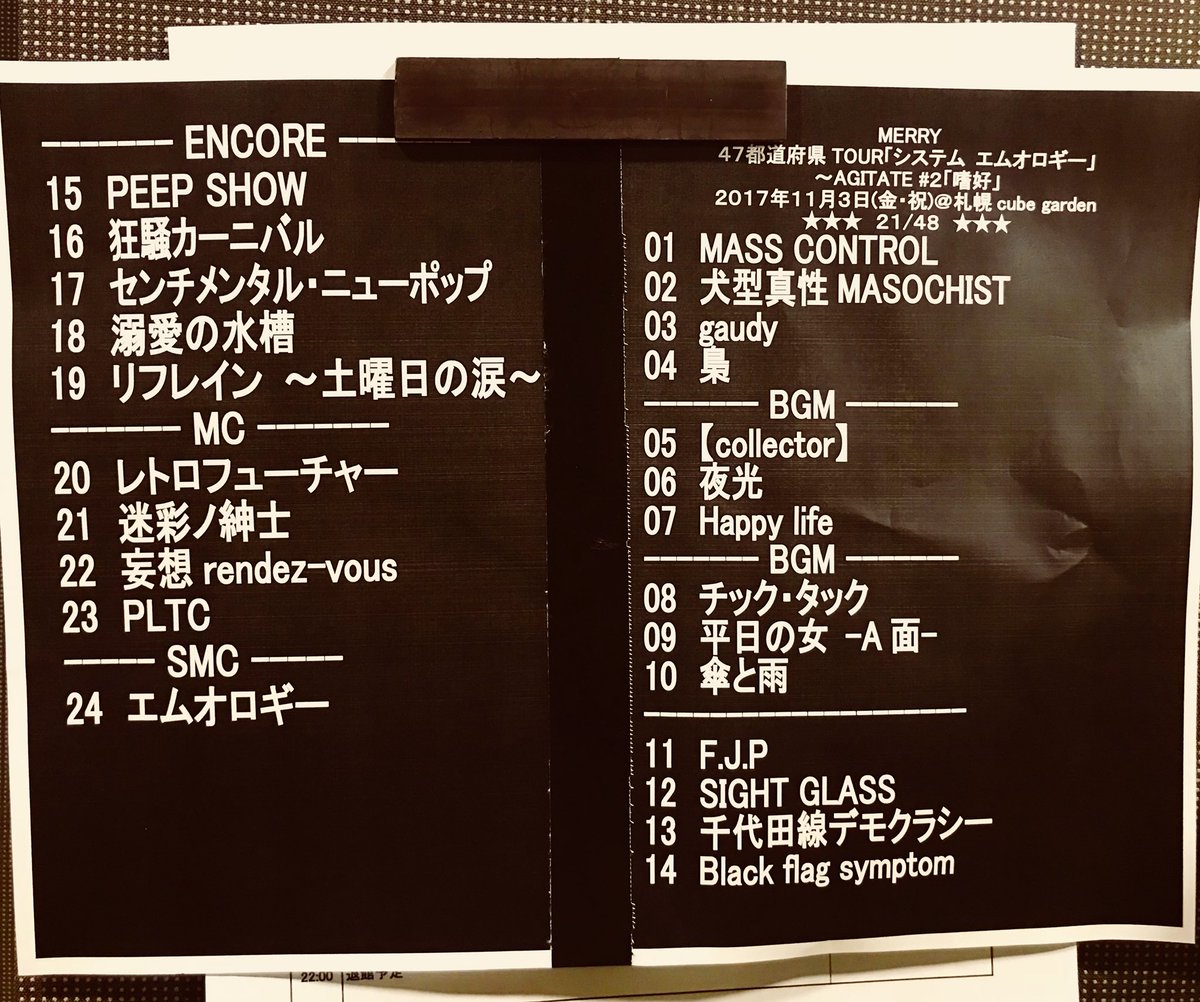 MERRY
47都道府県 TOUR「システム エムオロギー」
～AGITATE #2「嗜好」
2017年11月3日(金・祝)@札幌 cube garden
★★★ 21/48 ★★★
01 MASS CONTROL
02 犬型真性 MASOCHIST
03 gaudy
04 梟
------- BGM -------
05 【collector】
06 夜光
07 Happy life
------- BGM -------
08 チック・タック
09 平日の女 -A 面-
10 傘と雨
--------------------
11 F.J.P
12 SIGHT GLASS
13 千代田線デモクラシー
14 Black flag symptom
------- ENCORE -------
15 PEEP SHOW
16 狂騒カーニバル
17 センチメンタル・ニューポップ
18 溺愛の水槽
19 リフレイン ～土曜日の涙～
------- MC -------
20 レトロフューチャー
21 迷彩ノ紳士
22 妄想 rendez-vous
23 PLTC
----- SMC -----
24 エムオロギー
22:00 退館予定